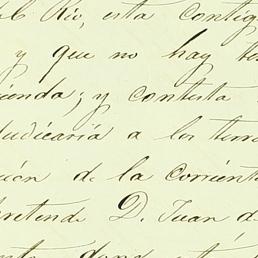 del Rio, esta contig
y que no hay te
ienda; y contesta
judicaria a los terre
ción de la Corrient
pretende D. Juan d